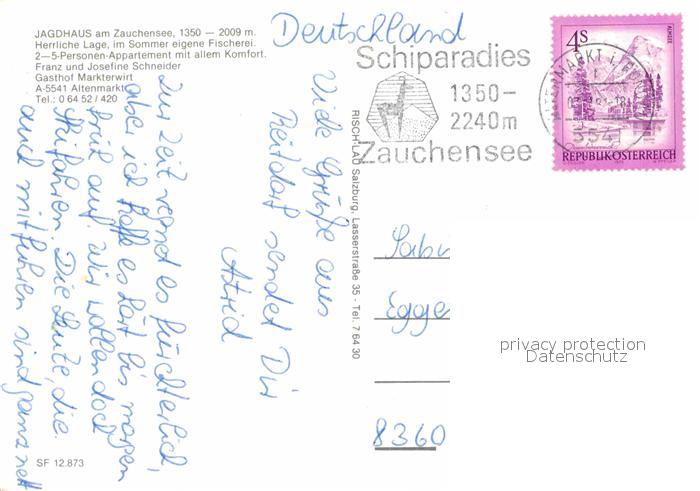 JAGDHAUS am Zauchensee, 1350 — 2009 m.
Herrliche Lage, im Sommer eigene Fischerei.
2—5-Personen-Appartement mit allem Komfort.
Franz und Josefine Schneider
Gasthof Markterwirt
A-5541 Altenmarkt
Tel.: 0 64 52 / 420
Deutschland
Schiparadies
1350—
2240m
Zauchensee
4S
REPUBLIK ÖSTERREICH
5541
Viele Grüße aus
Reitdorf sendet Dir
Astrid
Zur Zeit regnet es fürchterlich,
aber ich hoffe es hört bis morgen
früh auf. Wir wollen doch
Skifahren. Die Leute, die
auch mitfuhren sind ganz nett
RISCH-LAU Salzburg, Lasserstraße 35 - Tel. 7 64 30
Sabi
Egge
8360
privacy protection
Datenschutz
SF 12.873